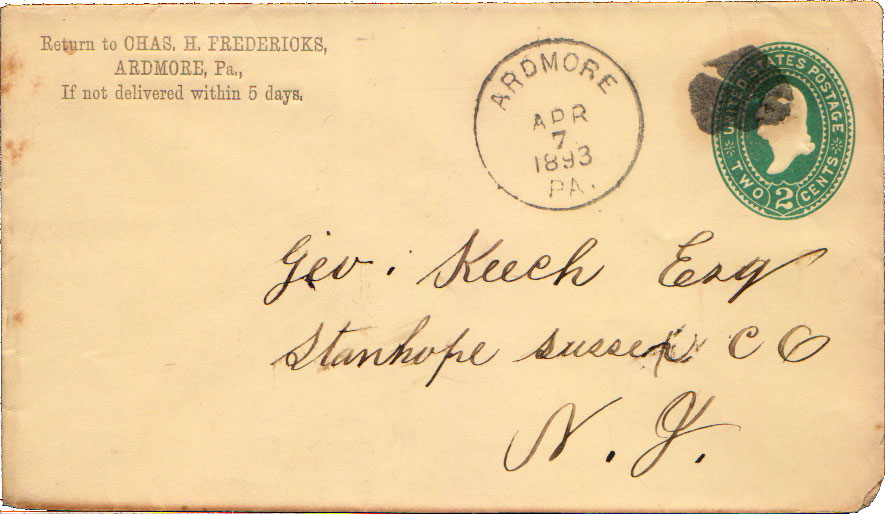 Return to CHAS. H. FREDERICKS,
ARDMORE, Pa.,
If not delivered within 5 days.
ARDMORE
APR
7
1893
PA.
UNITED STATES POSTAGE
TWO 2 CENTS
Geo. Keech Esq
Stanhope Sussex C O
N. J.